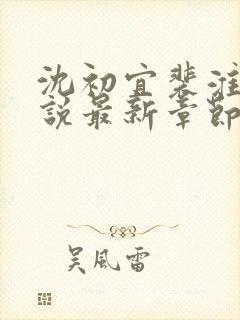 沈初宜裴淮
説最新章節
吴風雷